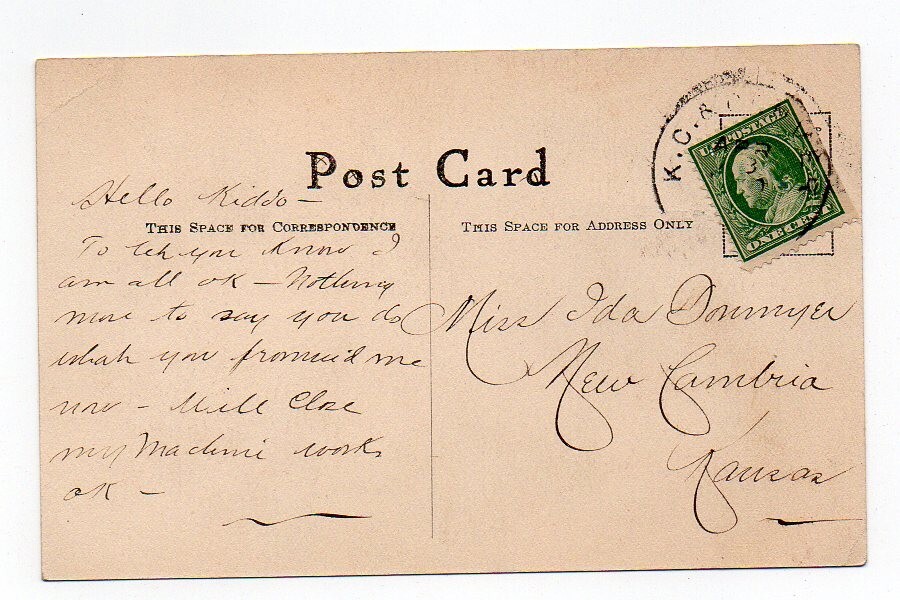 Post Card
Hello Kiddo —
THIS SPACE FOR CORRESPONDENCE
To let you know I
am all ok — Nothing
more to say you do
what you promised me
now — Will Close
my Machine works
ok —
THIS SPACE FOR ADDRESS ONLY
Miss Ida Donmyer
New Cambria
Kansas
K.C. &
U.S. POSTAGE
ONE CENT